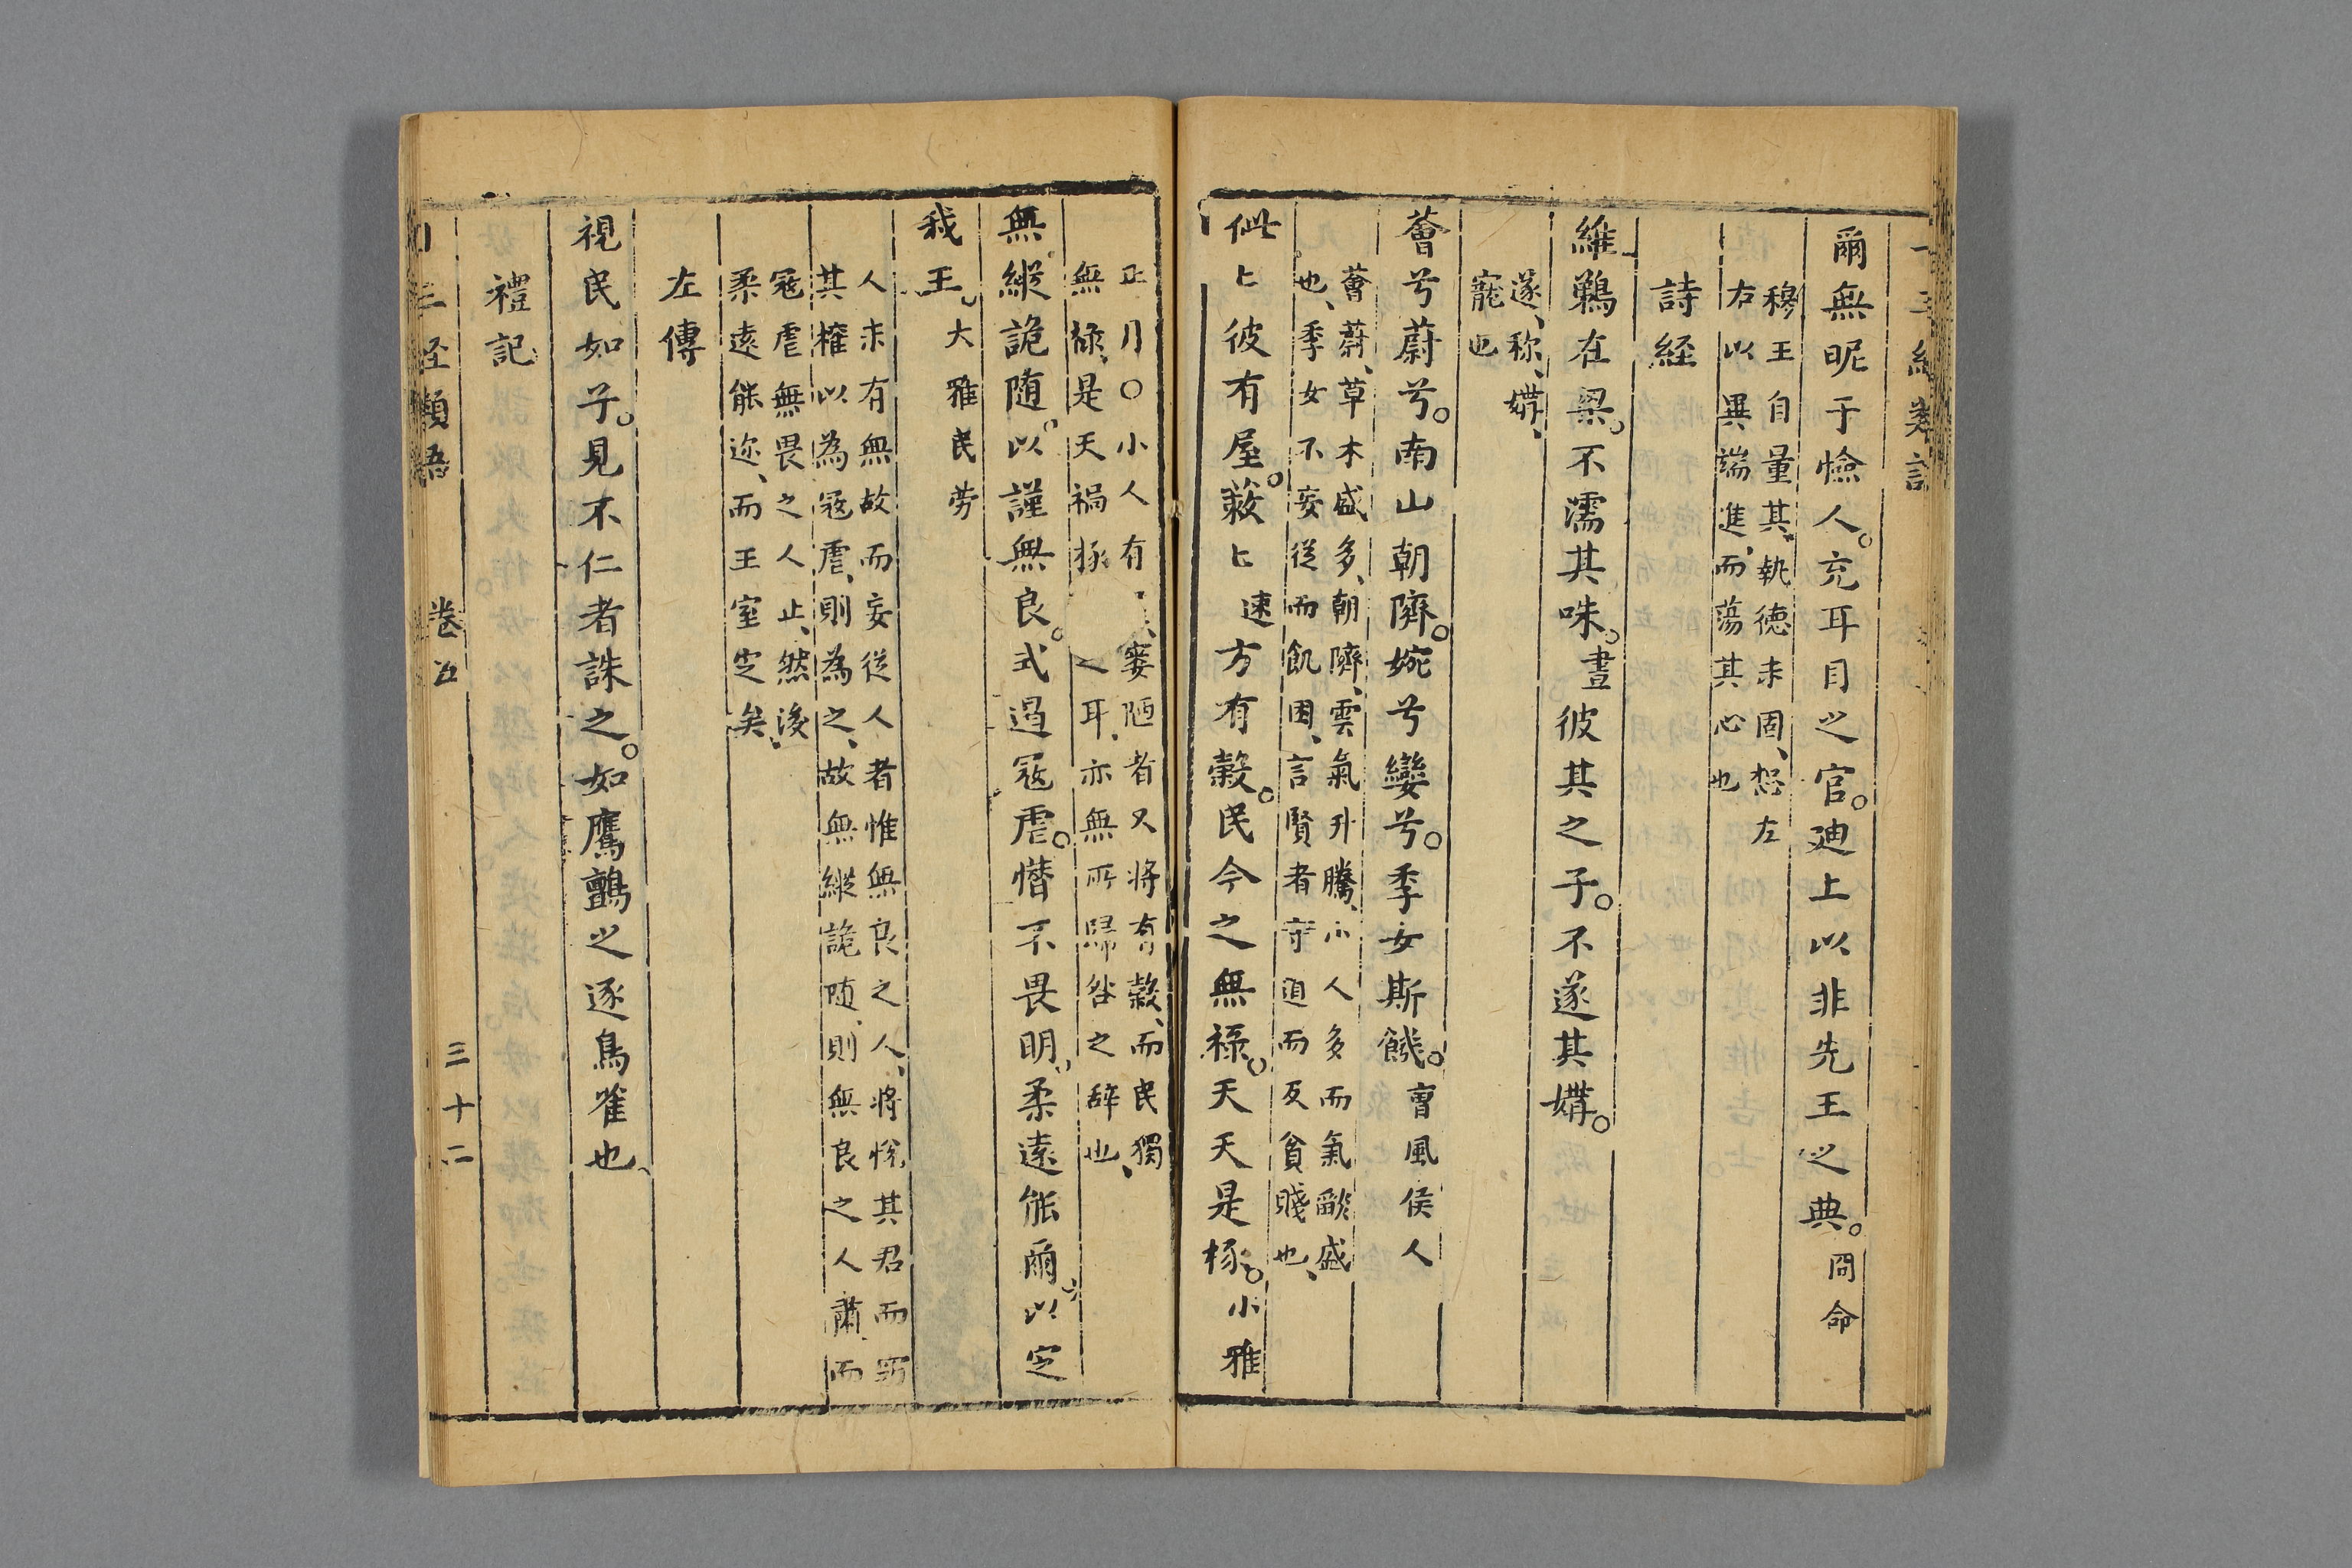 爾無昵于憸人。充耳目之官。廸上以非先王之典。冏命
穆王自量其、執徳未固、恐左
右以異端進、而蕩其心也
詩経
維鵜在梁。不濡其咮。晝彼其之子。不遂其媾。
遂、称、媾、
寵也
薈兮蔚兮。南山朝隮。婉兮孌兮。季女斯饑。曺風侯人
薈蔚、草木盛多、朝隮、雲氣升騰、小人多而氣𬓛盛
也、季女不妄従而飢困、言賢者守道而反貧賤也、
佌〻彼有屋。蔌〻速方有榖。民今之無禄。天天是椓。小雅
正月〇小人有 窶陋者又将有榖、而民獨
無禄、是天禍椓之耳、亦無所歸咎之辞也、
無縱詭随。以謹無良。式遏冦虐。憯不畏明。柔遠能爾。以定
我王。大雅民劳
人未有無故而妄従人者惟無良之人、将悦其君而竊
其權以為冦虐、則為之、故無縱詭随、則無良之人肅而
冦虐無畏之人止、然後
柔遠能迩、而王室定矣、
左傳
視民如子。見不仁者誅之。如鷹鸇之逐鳥雀也、
禮記
十三経類語 卷五 三十二